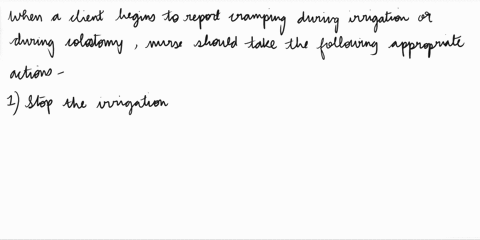 When a client begins to report cramping during irrigation or
during colostomy, nurse should take the following appropriate
actions -
1) Stop the irrigation